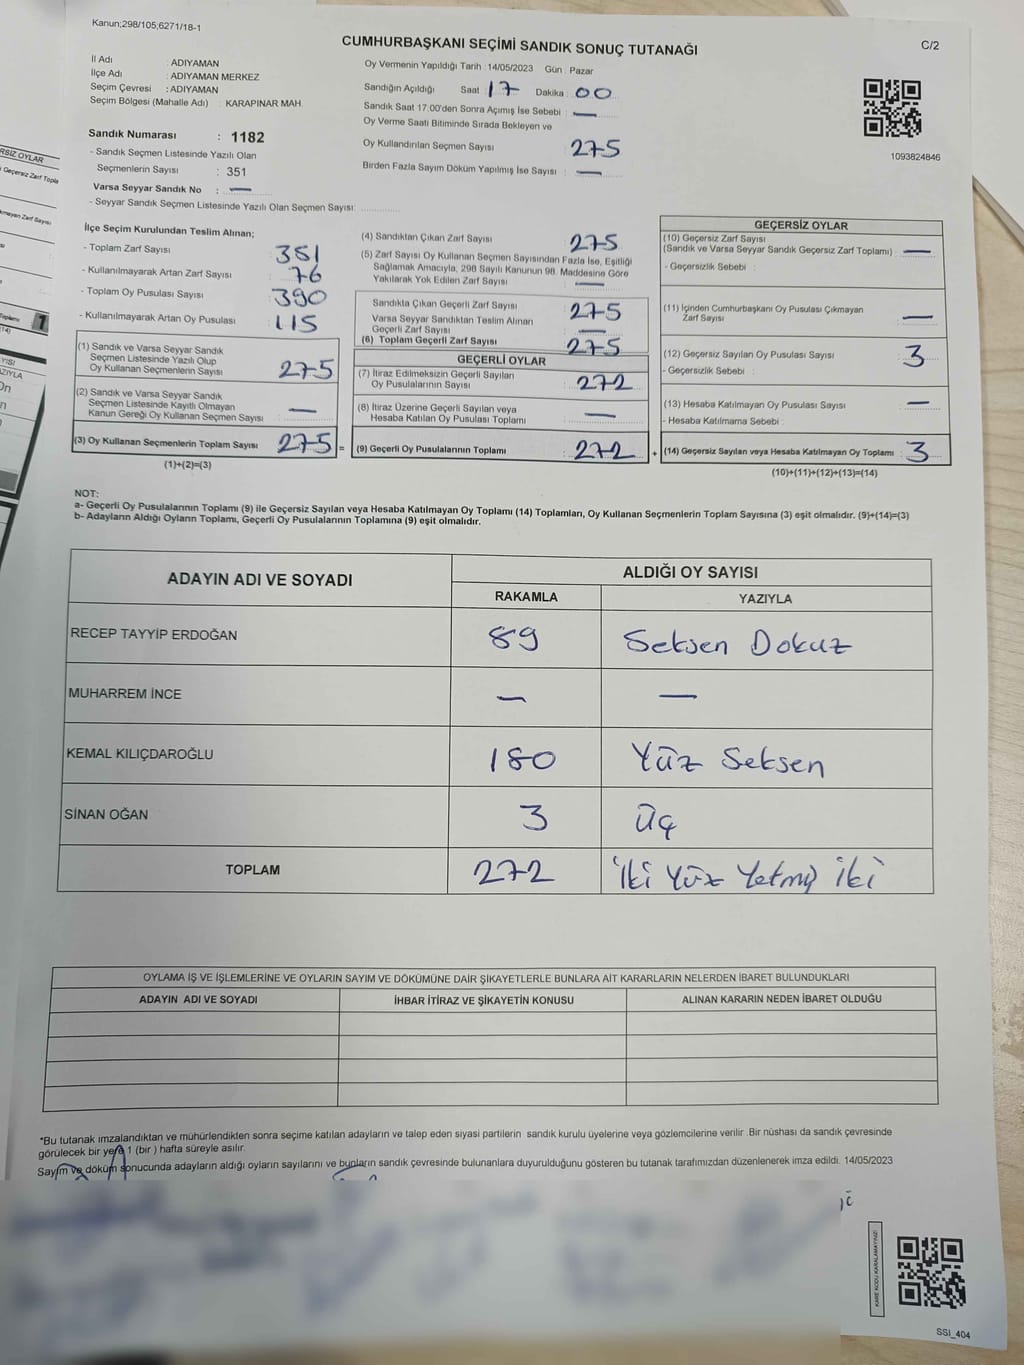 Kanun;298/105;6271/18-1
CUMHURBAŞKANI SEÇİMİ SANDIK SONUÇ TUTANAĞI
C/2
İl Adı : ADIYAMAN
İlçe Adı : ADIYAMAN MERKEZ
Seçim Çevresi : ADIYAMAN
Seçim Bölgesi (Mahalle Adı) : KARAPINAR MAH.
Sandık Numarası : 1182
- Sandık Seçmen Listesinde Yazılı Olan
Seçmenlerin Sayısı : 351
Varsa Seyyar Sandık No : —
- Seyyar Sandık Seçmen Listesinde Yazılı Olan Seçmen Sayısı:
Oy Vermenin Yapıldığı Tarih :14/05/2023 Gün : Pazar
Sandığın Açıldığı Saat : 17 Dakika : 00
Sandık Saat 17:00'den Sonra Açımış İse Sebebi : —
Oy Verme Saati Bitiminde Sırada Bekleyen ve
Oy Kullandırılan Seçmen Sayısı 275
Birden Fazla Sayım Döküm Yapılmış İse Sayısı : —
1093824846
İlçe Seçim Kurulundan Teslim Alınan;
- Toplam Zarf Sayısı : 351
- Kullanılmayarak Artan Zarf Sayısı : 76
- Toplam Oy Pusulası Sayısı : 390
- Kullanılmayarak Artan Oy Pusulası : 115
(1) Sandık ve Varsa Seyyar Sandık
Seçmen Listesinde Yazılı Olup
Oy Kullanan Seçmenlerin Sayısı : 275
(2) Sandık ve Varsa Seyyar Sandık
Seçmen Listesinde Kayıtlı Olmayan
Kanun Gereği Oy Kullanan Seçmen Sayısı : —
(3) Oy Kullanan Seçmenlerin Toplam Sayısı : 275 =
(1)+(2)=(3)
(4) Sandıktan Çıkan Zarf Sayısı 275
(5) Zarf Sayısı Oy Kullanan Seçmen Sayısından Fazla İse, Eşitliği
Sağlamak Amacıyla; 298 Sayılı Kanunun 98. Maddesine Göre
Yakılarak Yok Edilen Zarf Sayısı : —
Sandıkta Çıkan Geçerli Zarf Sayısı : 275
Varsa Seyyar Sandıktan Teslim Alınan
Geçerli Zarf Sayısı : —
(6) Toplam Geçerli Zarf Sayısı : 275
GEÇERLİ OYLAR
(7) İtiraz Edilmeksizin Geçerli Sayılan
Oy Pusulalarının Sayısı : 272
(8) İtiraz Üzerine Geçerli Sayılan veya
Hesaba Katılan Oy Pusulası Toplamı : —
(9) Geçerli Oy Pusulalarının Toplamı : 272 +
GEÇERSİZ OYLAR
(10) Geçersiz Zarf Sayısı
(Sandık ve Varsa Seyyar Sandık Geçersiz Zarf Toplamı) : —
- Geçersizlik Sebebi :
(11) İçinden Cumhurbaşkanı Oy Pusulası Çıkmayan
Zarf Sayısı : —
(12) Geçersiz Sayılan Oy Pusulası Sayısı : 3
- Geçersizlik Sebebi :
(13) Hesaba Katılmayan Oy Pusulası Sayısı : —
- Hesaba Katılmama Sebebi :
(14) Geçersiz Sayılan veya Hesaba Katılmayan Oy Toplamı : 3
(10)+(11)+(12)+(13)=(14)
NOT:
a- Geçerli Oy Pusulalarının Toplamı (9) ile Geçersiz Sayılan veya Hesaba Katılmayan Oy Toplamı (14) Toplamları, Oy Kullanan Seçmenlerin Toplam Sayısına (3) eşit olmalıdır. (9)+(14)=(3)
b- Adayların Aldığı Oyların Toplamı, Geçerli Oy Pusulalarının Toplamına (9) eşit olmalıdır.
ADAYIN ADI VE SOYADI
ALDIĞI OY SAYISI
RAKAMLA YAZIYLA
RECEP TAYYİP ERDOĞAN 89 Seksen Dokuz
MUHARREM İNCE — —
KEMAL KILIÇDAROĞLU 180 Yüz Seksen
SİNAN OĞAN 3 Üç
TOPLAM 272 İki Yüz Yetmiş İki
OYLAMA İŞ VE İŞLEMLERİNE VE OYLARIN SAYIM VE DÖKÜMÜNE DAİR ŞİKAYETLERLE BUNLARA AİT KARARLARIN NELERDEN İBARET BULUNDUKLARI
ADAYIN ADI VE SOYADI İHBAR İTİRAZ VE ŞİKAYETİN KONUSU ALINAN KARARIN NEDEN İBARET OLDUĞU
*Bu tutanak imzalandıktan ve mühürlendikten sonra seçime katılan adayların ve talep eden siyasi partilerin sandık kurulu üyelerine veya gözlemcilerine verilir .Bir nüshası da sandık çevresinde
görülecek bir yere 1 (bir ) hafta süreyle asılır.
Sayım ve döküm sonucunda adayların aldığı oyların sayılarını ve bunların sandık çevresinde bulunanlara duyurulduğunu gösteren bu tutanak tarafımızdan düzenlenerek imza edildi. 14/05/2023
KARE KODU KARALAMAYINIZ!
SSI_404